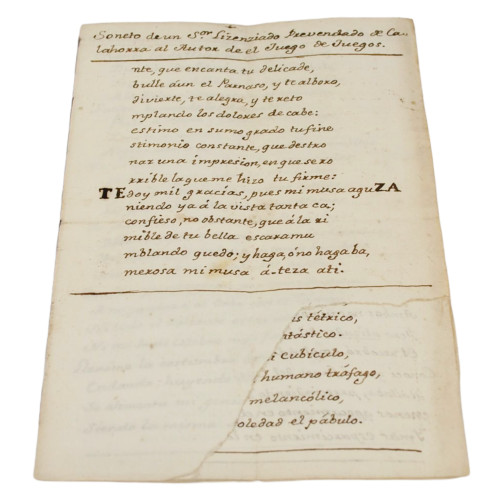 Soneto de un S.or Lizenziado Prevendado de Ca-
lahorra al Autor de el Juego de Juegos.
nte, que encanta tu delicade,
bulle aun el Parnaso, y te alboro,
divierte, se alegra, y te reto
mplando los dolores de cabe:
estimo en sumo grado tu fine
stimonio constante, que destro
nar una impresion, en que se ro
rrible la que me hizo tu firme:
TE doy mil gracias, pues mi musa agu ZA
niendo ya á la vista tanta ca;
confieso, no obstante, que á la ri
mible de tu bella escaramu
mblando quedo; y haga, ó no haga ba,
merosa mi musa á-teza ati.
is tétrico,
ntástico.
i cubículo,
humano tráfago,
melancólico,
oledad el pábulo.